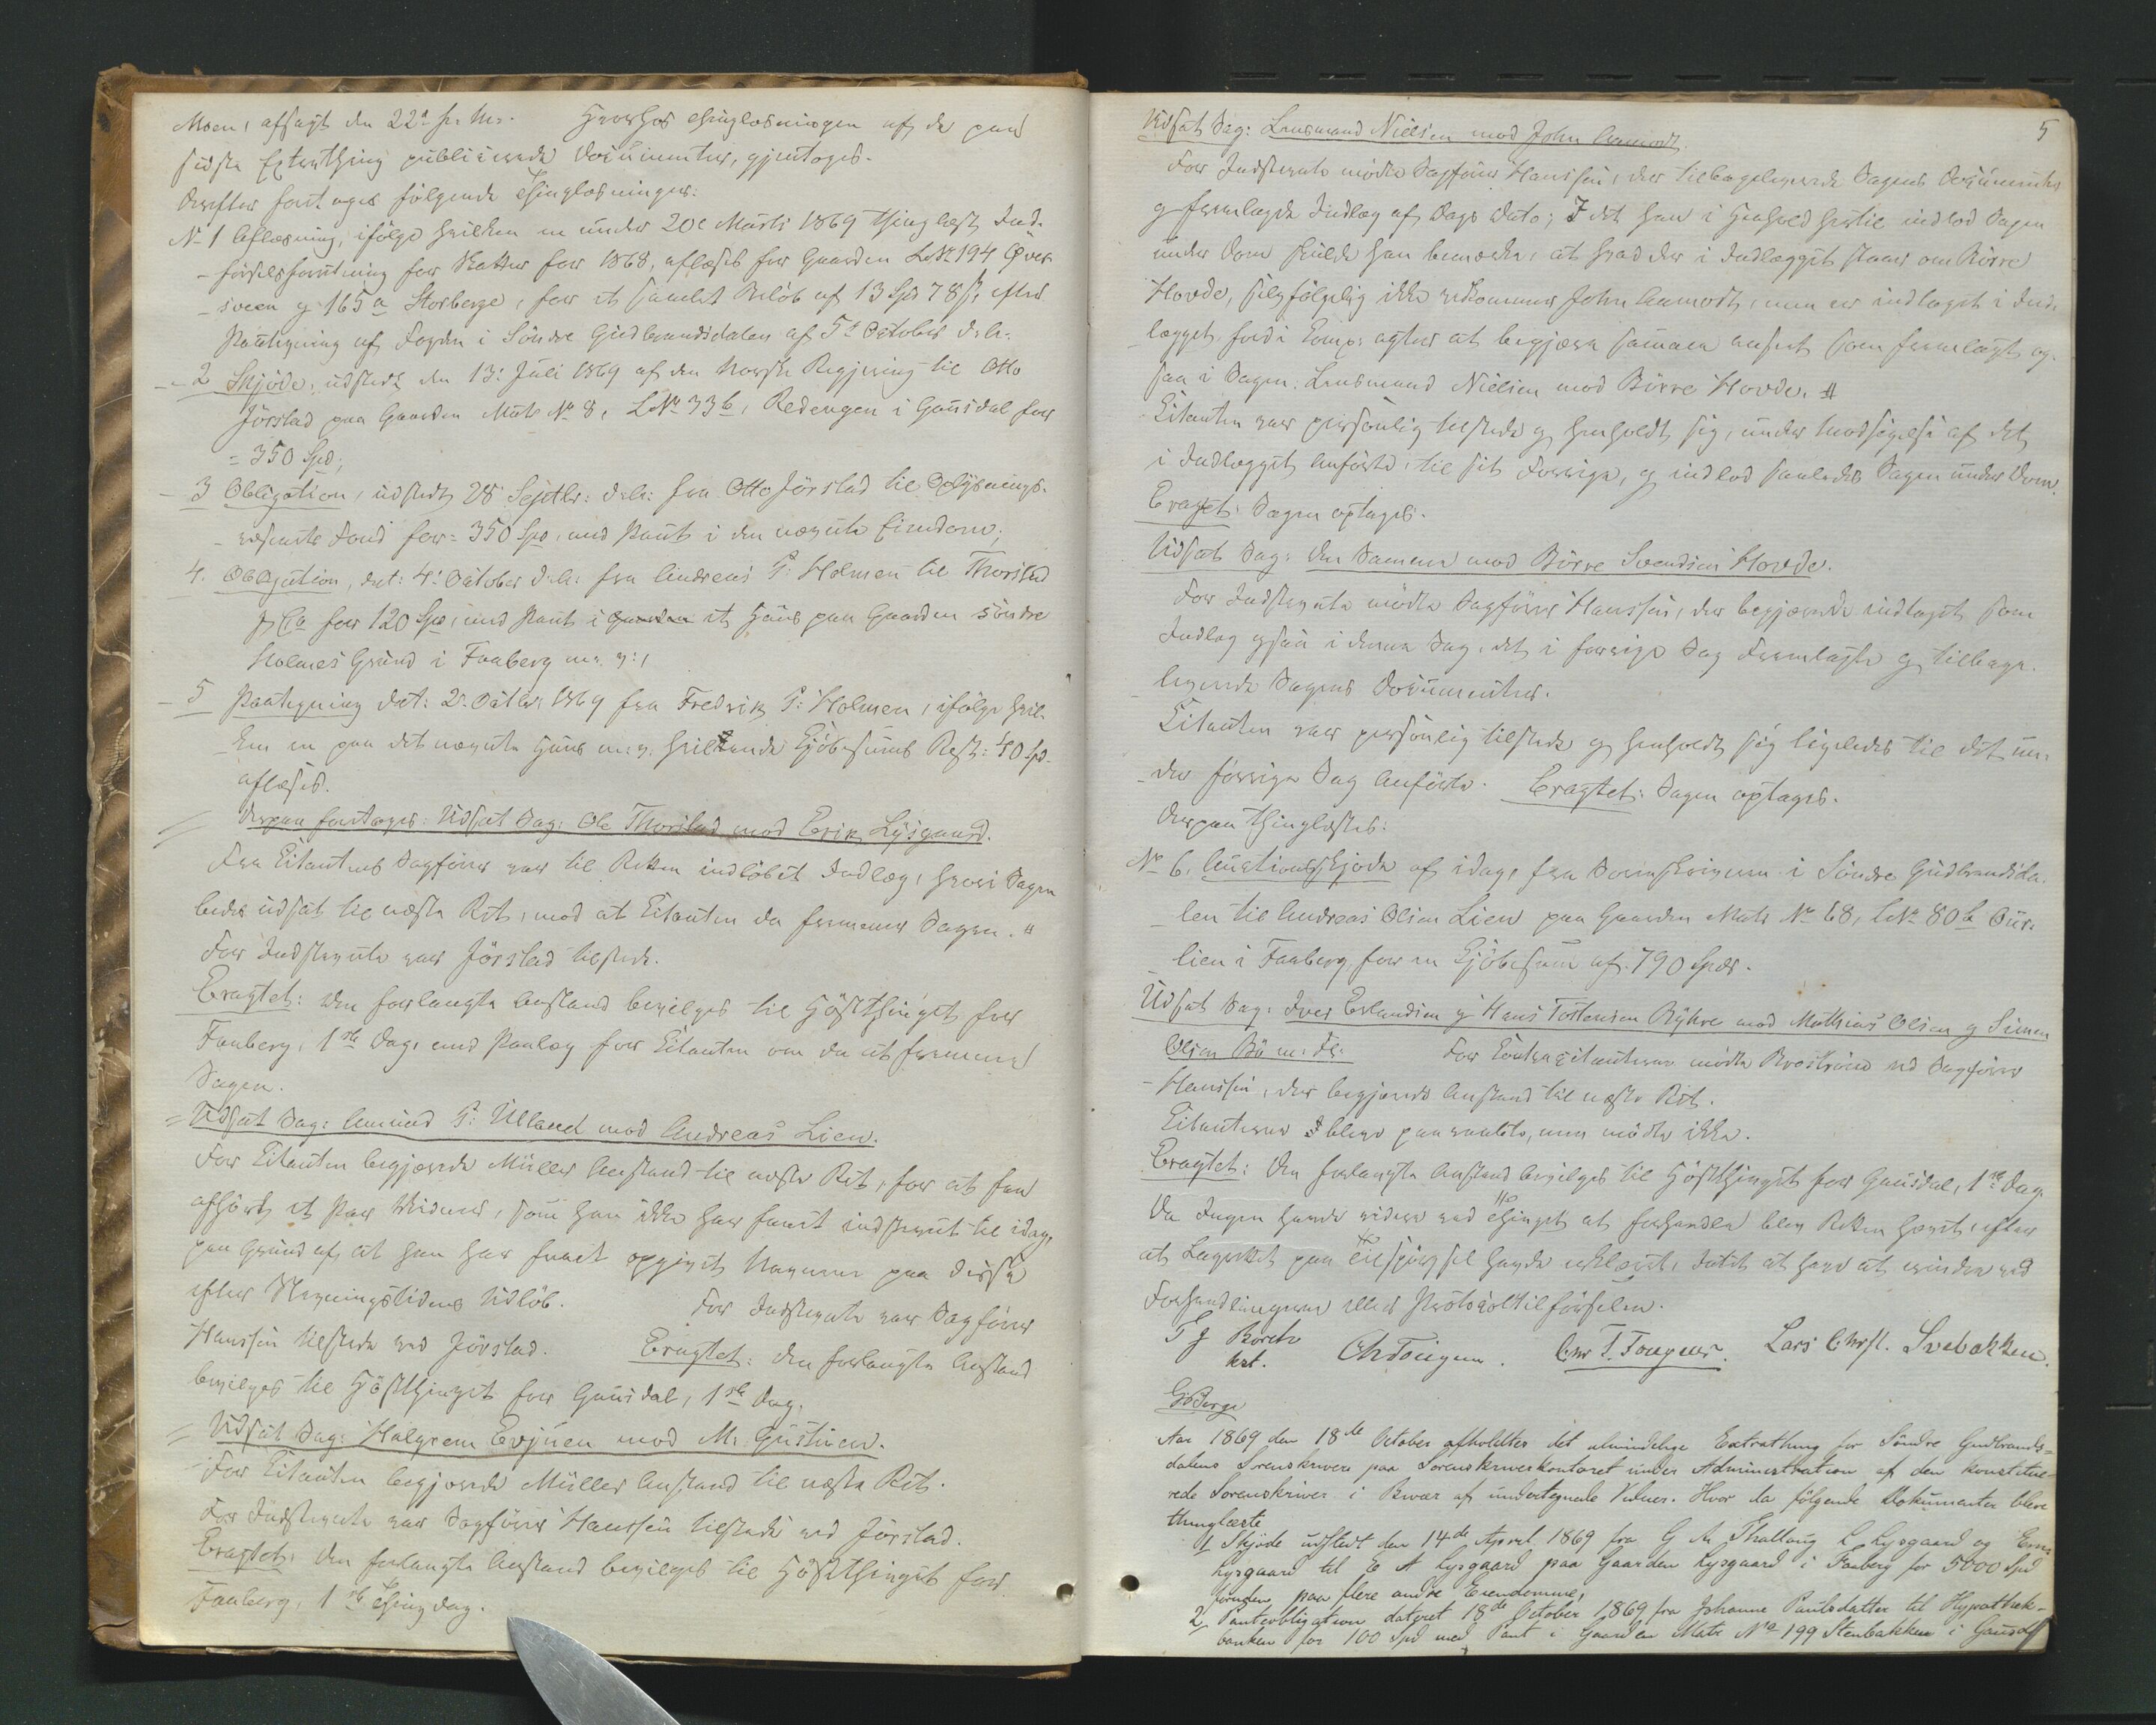 Moen, afsagt den 22de f. M. Hvorhos thinglæsningen af de paa
sidste Extrathing publicerede Documenter, gjentoges.
Derefter foretoges følgende Thinglæsninger:
No 1 Aflæsning, ifølge hvilken en under 20de Marts 1869 thinglæst Ind-
førselsforretning for Skatter for 1868, aflæses for Gaarden LNr 194 Øver-
sveen og 165a Storberge, for et samlet Beløb af 13 Spd 78 s, efter
Paategning af Fogden i Söndre Gudbrandsdalen af 5te October d. A.
- 2 Skjöde, udstedt den 13. Juli 1869 af den Norske Regjering til Otto
Jörstad paa Gaarden Matr No 8, LNr 33b, Redengen i Gausdal for
= 350 Spd;
- 3 Obligation, udstedt 28 Septbr: d. A. fra Otto Jörstad til Oplysnings-
væsenets Fond for = 350 Spd, med Pant i den nævnte Eiendom;
4. Obligation, dat: 4. October d. A. fra Andreas P. Holmen til Thorstad
& Co for 120 Spd, med Pant i Gaarden et Huus paa Gaarden söndre
Holmes Grund i Faaberg m. v.;
- 5 Paategning dat: 2. Octbr. 1869 fra Fredrik P. Holmen, ifølge hvil-
ken en paa det nævnte Huus m. v. heftende Kjöbesums Rest = 40 Spd
aflæses.
Derpaa foretoges: Udsat Sag: Ole Thorstad mod Erik Lysgaard.
Fra Citantens Sagförer var til Retten indlöbet Indlæg, hvori Sagen
bedes udsat til næste Ret, mod at Citanten da fremmer Sagen. "
For Indstevnte var Jörstad tilstede.
Eragtet: Den forlangte Anstand bevilges til Höstthinget for
Faaberg, 1ste Dag, med Paalæg for Citanten om da at fremme
Sagen.
= Udsat Sag: Amund P. Ulland mod Andreas Lien.
For Citanten begjærede Müller Anstand til næste Ret, for at faa
afhört et Par Vidner, som han ikke har faaet indstevnt til idag,
paa Grund af, at han har faaet opgivet Navnene paa disse
efter Stevningstidens Udlöb. For Indstevnte var Sagförer
Hanssen tilstede ved Jörstad. Eragtet: Den forlangte Anstand
bevilges til Höstthinget for Gausdal, 1ste Dag.
= Udsat Sag: Halgrem Evjuen mod M. Gustuen.
For Citanten begjærede Müller Anstand til næste Ret.
For Indstevnte var Sagförer Hanssen tilstede ved Jörstad.
Eragtet: Den forlangte Anstand bevilges til Höstthinget for
Faaberg, 1ste Thingdag.
5
Udsat Sag: Lensmand Nielsen mod John Aamodt.
For Indstevnte mödte Sagförer Hanssen, der tilbageleverede Sagens Documenter
og fremlagde Indlæg af Dags Dato; I det han i Henhold hertil indlod Sagen
under Dom skulde han bemærke, at hvad der i Indlægget staaer om Börre
Hovde, selvfølgelig ikke vedkommer John Aamodt, men er indtaget i Ind-
lægget, fordi Comp. agter at begjære samme anseet som fremlagt og-
saa i Sagen: Lensmand Nielsen mod Börre Hovde. #
Citanten var personlig tilstede og henholdt sig, under Modsigelse af det
i Indlægget Anförte, til sit Forrige, og indlod saaledes Sagen under Dom.
Eragtet: Sagen optages.
Udsat Sag: Den Samme mod Börre Svendsen Hovde.
For Indstevnte mödte Sagförer Hanssen, der begjærede indtaget som
Indlæg ogsaa i denne Sag, det i forrige Sag Fremlagte og tilbage-
leverede Sagens Documenter.
Citanten var personlig tilstede og henholdt sig ligeledes til det un-
der forrige Sag Anförte. Eragtet: Sagen optages.
Derpaa thinglæstes:
No 6. Auctionsskjöde af idag, fra Sorenskriveren i Söndre Gudbrandsda-
len til Andreas Olsen Lien paa Gaarden Matr No 68, LNr 80b Aur-
lien i Faaberg, for en Kjöbesum af 790 Spdr.
Udsat Sag: Iver Erlandsen og Hans Tostensen Rykre mod Mathias Olsen og Simen
Olsen Bö m. Fl. For Contracitanterne mödte Broström ved Sagförer
Hanssen, der begjærede Anstand til næste Ret.
Citanterne blev paaraabte, men mödte ikke.
Eragtet: Den forlangte Anstand bevilges til Höstthinget for Gausdal, 1ste Dag.
Da Ingen havde videre ved Thinget at forhandle blev Retten hævet, efter
at Lagrettet paa Tilspörgsel havde erklæret, Intet at have at erindre ved
Forhandlingerne eller Protocoltilförselen.
T J Borch
kst. Ch Tougum. Chr T. Fougner. Lars Christ. Svebakken.
Aar 1869 den 18de October afholdtes det almindelige Extrathing for Söndre Gudbrands-
dalens Sorenskriveri paa Sorenskriverkontoret under Administration af den konstitue-
rede Sorenskriver i Overvær af undertegnede Vidner. Hvor da fölgende Dokumenter bleve
thinglæste
1 Skjöde udstedt den 14de April 1869 fra G A Thallaug L Lysgaard og
Lysgaard til E A Lysgaard paa Gaarden Lysgaard i Faaberg for 5000 Spd
foruden paa flere andre Eiendomme;
2 Panteobligation dateret 18de October 1869 fra Johanne Paulsdatter til Hypothek-
banken for 100 Spd med Pant i Gaarden Matr No 199 Stenbakken i Gausdal